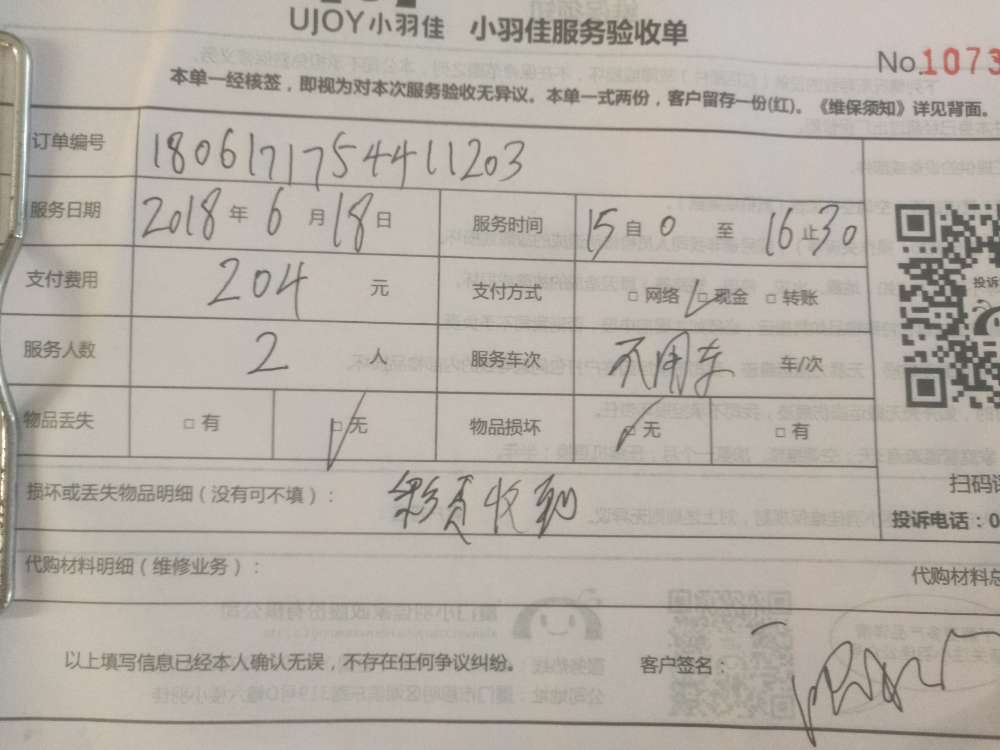 UJOY小羽佳 小羽佳服务验收单
No.1073
本单一经核签，即视为对本次服务验收无异议。本单一式两份，客户留存一份(红)。《维保须知》详见背面。
订单编号 1806171754411203
服务日期 2018年6月18日 服务时间 15自0至16止30
支付费用 204元 支付方式 □网络 □现金 □转账
投诉
服务人数 2人 服务车次 不用车 车/次
物品丢失 □有 □无 物品损坏 □无 □有
扫码
损坏或丢失物品明细（没有可不填）： 收到
投诉电话：0
代购材料明细（维修业务）： 代购材料总
以上填写信息已经本人确认无误，不存在任何争议纠纷。 客户签名：